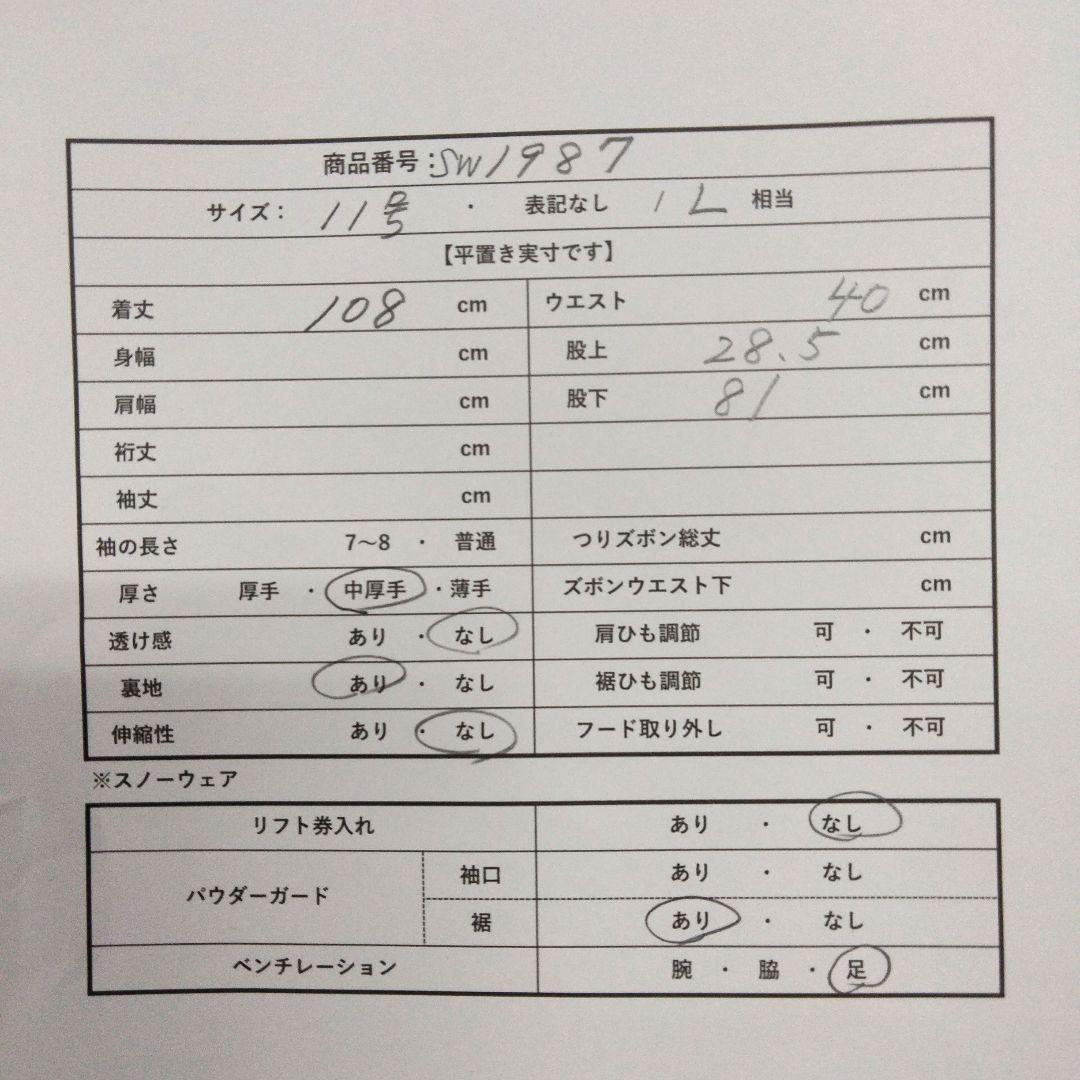 商品番号：SW1987
サイズ： 11号 ・ 表記なし 1L 相当
【平置き実寸です】
着丈 108 cm ウエスト 40 cm
身幅 cm 股上 28.5 cm
肩幅 cm 股下 81 cm
裄丈 cm
袖丈 cm
袖の長さ 7～8 ・ 普通 つりズボン総丈 cm
厚さ 厚手 ・ 中厚手 ・ 薄手 ズボンウエスト下 cm
透け感 あり ・ なし 肩ひも調節 可 ・ 不可
裏地 あり ・ なし 裾ひも調節 可 ・ 不可
伸縮性 あり ・ なし フード取り外し 可 ・ 不可
※スノーウェア
リフト券入れ あり ・ なし
パウダーガード 袖口 あり ・ なし
裾 あり ・ なし
ベンチレーション 腕 ・ 脇 ・ 足